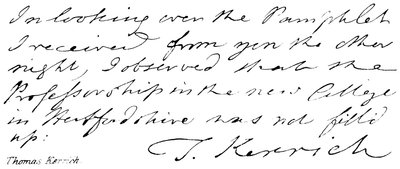 In looking over the Pamphlet
I received from you the other
night, I observed that the
Professorship in the new College
in Hertfordshire was not fill'd
up:
T. Kerrich
Thomas Kerrich.